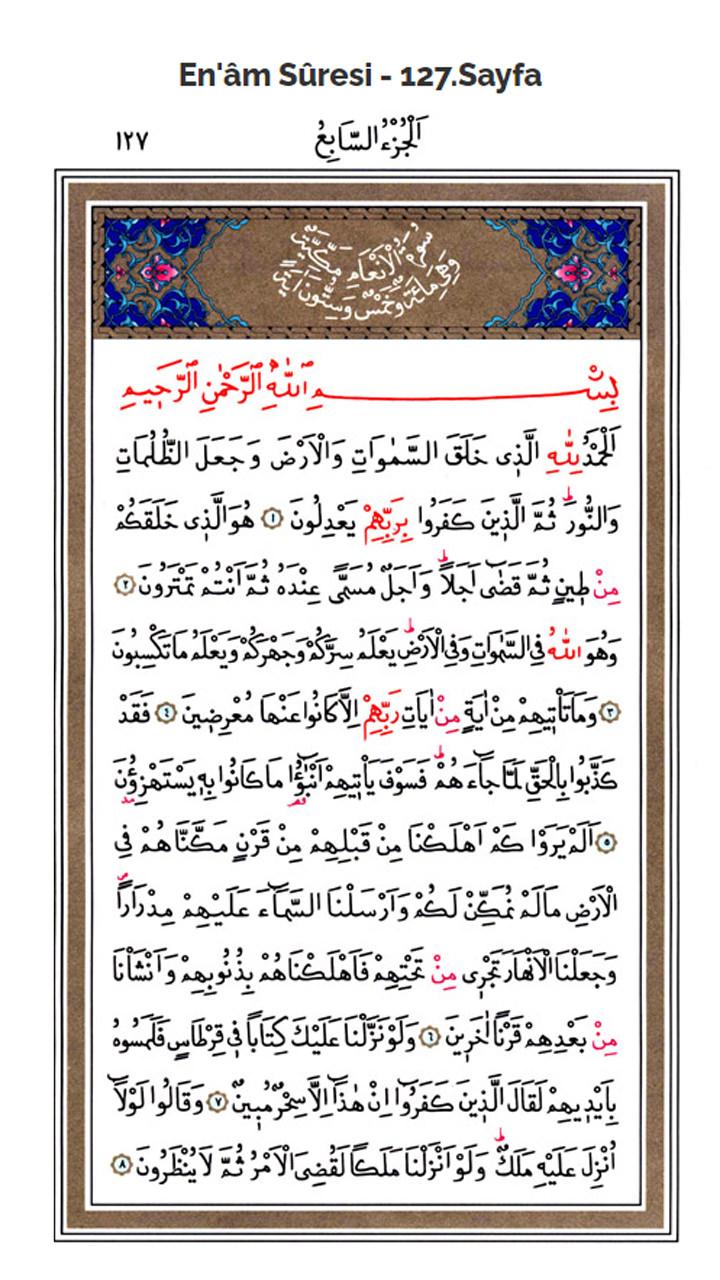 En'âm Sûresi - 127.Sayfa
اَلْجُزْءُ السَّابِعُ
١٢٧
سُورَةُ الْاَنْعَامِ مَكِّيَّةٌ
وَهِيَ مِائَةٌ وَخَمْسٌ وَسِتُّونَ اٰيَةً
بِسْمِ اللّٰهِ الرَّحْمٰنِ الرَّحٖيمِ
اَلْحَمْدُ لِلّٰهِ الَّذٖى خَلَقَ السَّمٰوَاتِ وَالْاَرْضَ وَجَعَلَ الظُّلُمَاتِ
وَالنُّورَۜ ثُمَّ الَّذٖينَ كَفَرُوا بِرَبِّهِمْ يَعْدِلُونَ ﴿١﴾ هُوَ الَّذٖى خَلَقَكُمْ
مِنْ طٖينٍ ثُمَّ قَضٰٓى اَجَلاًۜ وَاَجَلٌ مُسَمًّى عِنْدَهُ ثُمَّ اَنْتُمْ تَمْتَرُونَ ﴿٢﴾
وَهُوَ اللّٰهُ فِى السَّمٰوَاتِ وَفِى الْاَرْضِۜ يَعْلَمُ سِرَّكُمْ وَجَهْرَكُمْ وَيَعْلَمُ مَا تَكْسِبُونَ
﴿٣﴾ وَمَا تَأْتٖيهِمْ مِنْ اٰيَةٍ مِنْ اٰيَاتِ رَبِّهِمْ اِلَّا كَانُوا عَنْهَا مُعْرِضٖينَ ﴿٤﴾ فَقَدْ
كَذَّبُوا بِالْحَقِّ لَمَّا جَٓاءَهُمْۜ فَسَوْفَ يَأْتٖيهِمْ اَنْبٰٓؤُ۬ا مَا كَانُوا بِهٖ يَسْتَهْزِؤُ۫نَ
﴿٥﴾ اَلَمْ يَرَوْا كَمْ اَهْلَكْنَا مِنْ قَبْلِهِمْ مِنْ قَرْنٍ مَكَّنَّاهُمْ فِى
الْاَرْضِ مَا لَمْ نُمَكِّنْ لَكُمْ وَاَرْسَلْنَا السَّمَٓاءَ عَلَيْهِمْ مِدْرَاراًۖ
وَجَعَلْنَا الْاَنْهَارَ تَجْرٖى مِنْ تَحْتِهِمْ فَاَهْلَكْنَاهُمْ بِذُنُوبِهِمْ وَاَنْشَأْنَا
مِنْ بَعْدِهِمْ قَرْناً اٰخَرٖينَ ﴿٦﴾ وَلَوْ نَزَّلْنَا عَلَيْكَ كِتَاباً فٖى قِرْطَاسٍ فَلَمَسُوهُ
بِاَيْدٖيهِمْ لَقَالَ الَّذٖينَ كَفَرُٓوا اِنْ هٰذَٓا اِلَّا سِحْرٌ مُبٖينٌ ﴿٧﴾ وَقَالُوا لَوْلَٓا
اُنْزِلَ عَلَيْهِ مَلَكٌۜ وَلَوْ اَنْزَلْنَا مَلَكاً لَقُضِىَ الْاَمْرُ ثُمَّ لَا يُنْظَرُونَ ﴿٨﴾